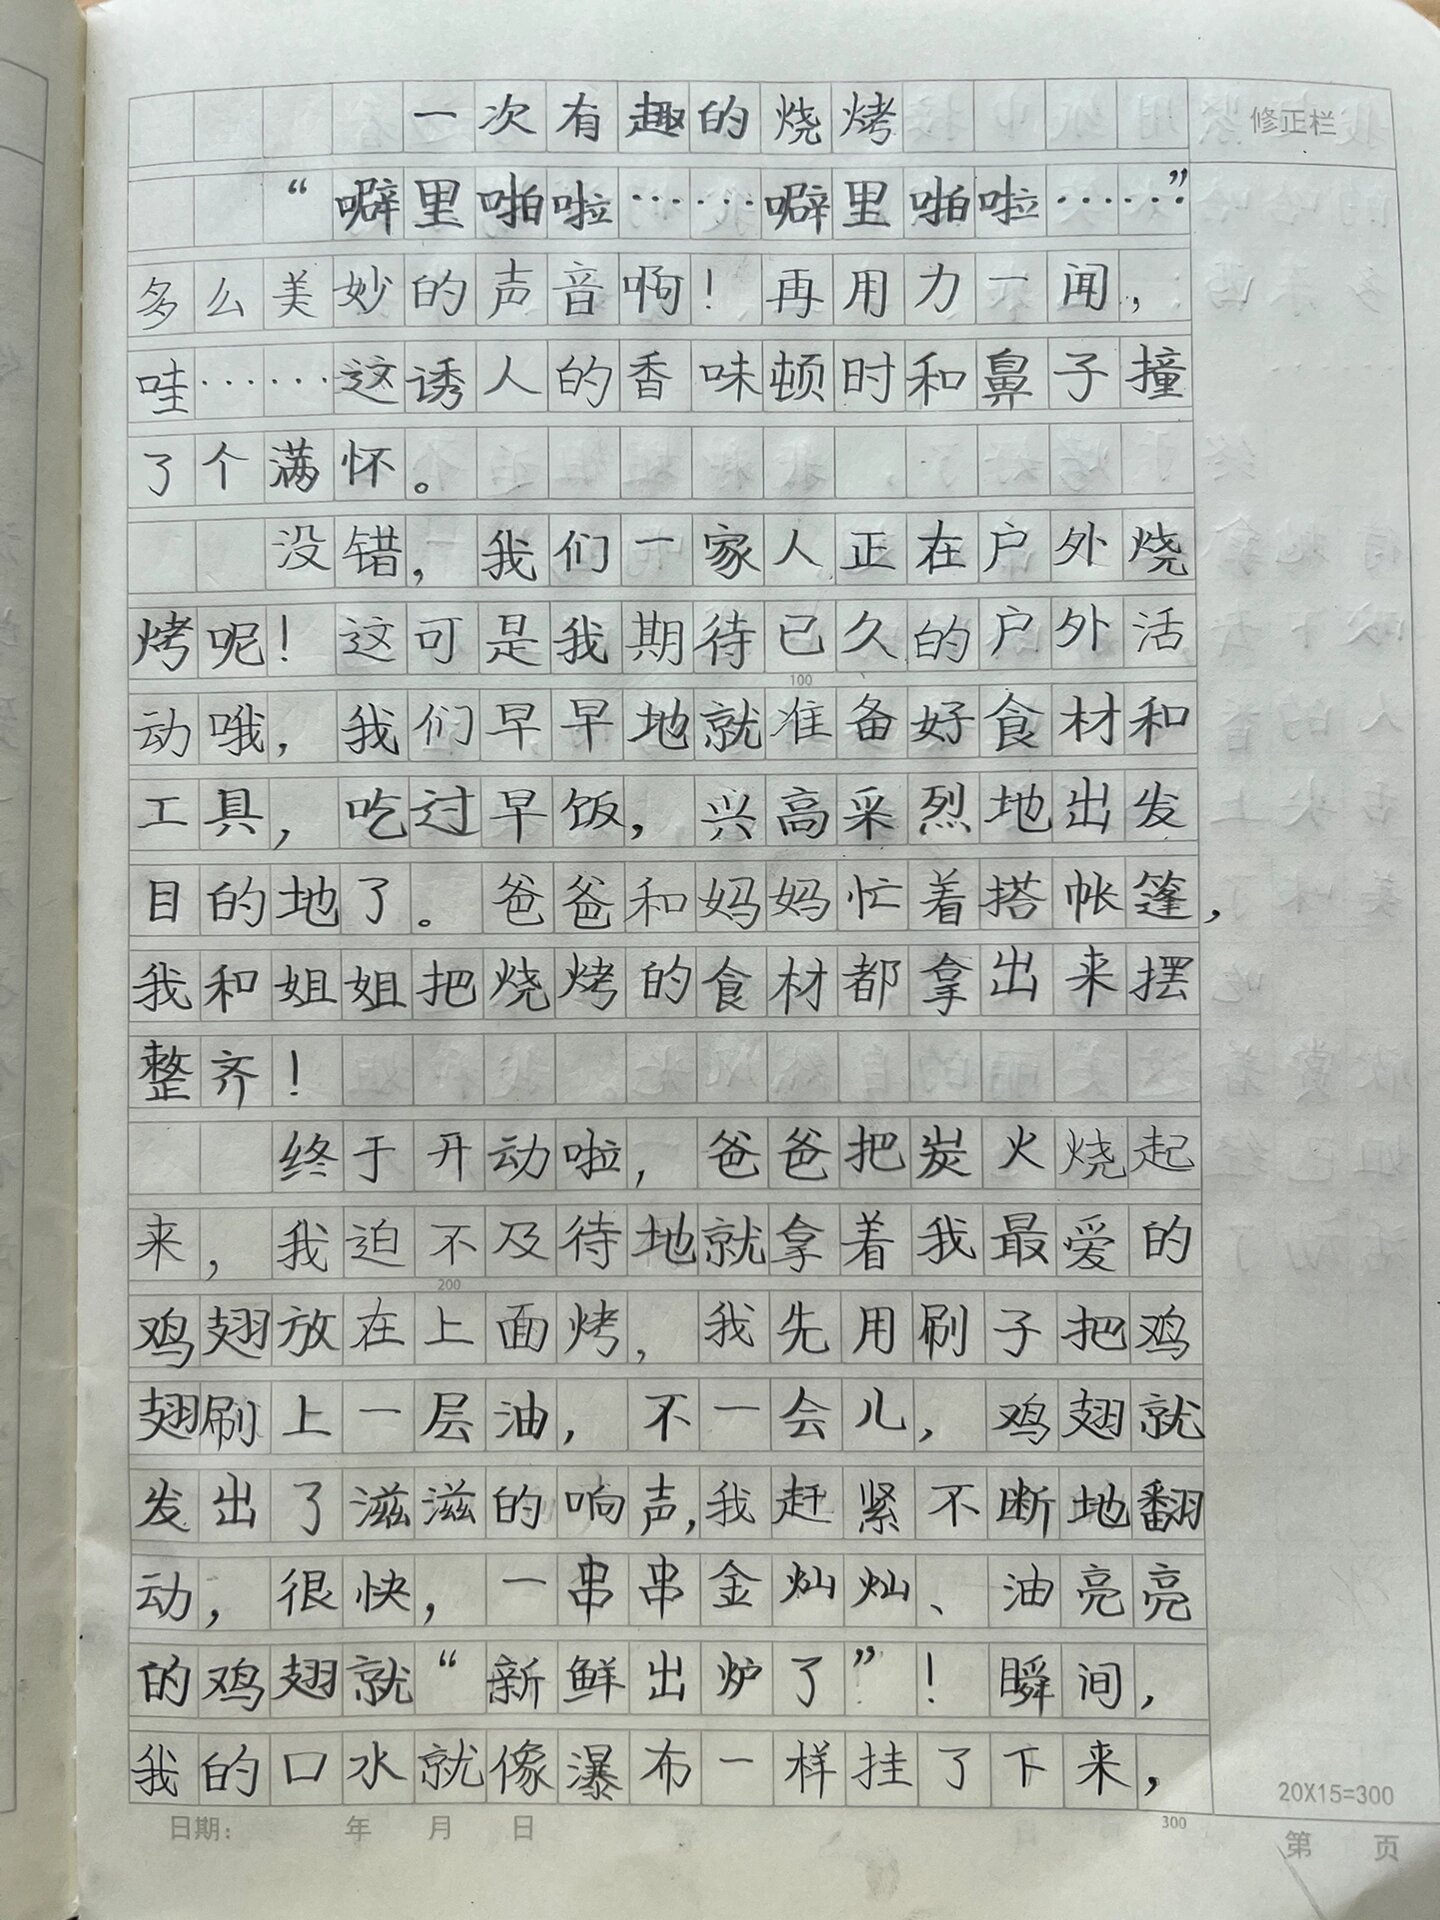 一次有趣的烧烤
修正栏
“噼里啪啦……噼里啪啦……”
多么美妙的声音啊！再用力一闻，
哇……这诱人的香味顿时和鼻子撞
了个满怀。
没错，我们一家人正在户外烧
烤呢！这可是我期待已久的户外活
100
动哦，我们早早地就准备好食材和
工具，吃过早饭，兴高采烈地出发
目的地了。爸爸和妈妈忙着搭帐篷，
我和姐姐把烧烤的食材都拿出来摆
整齐！
终于开动啦，爸爸把炭火烧起
来，我迫不及待地就拿着我最爱的
200
鸡翅放在上面烤，我先用刷子把鸡
翅刷上一层油，不一会儿，鸡翅就
发出了滋滋的响声，我赶紧不断地翻
动，很快，一串串金灿灿、油亮亮
的鸡翅就“新鲜出炉了”！瞬间，
我的口水就像瀑布一样挂了下来，
20X15=300
日期： 年 月 日
300
第 页